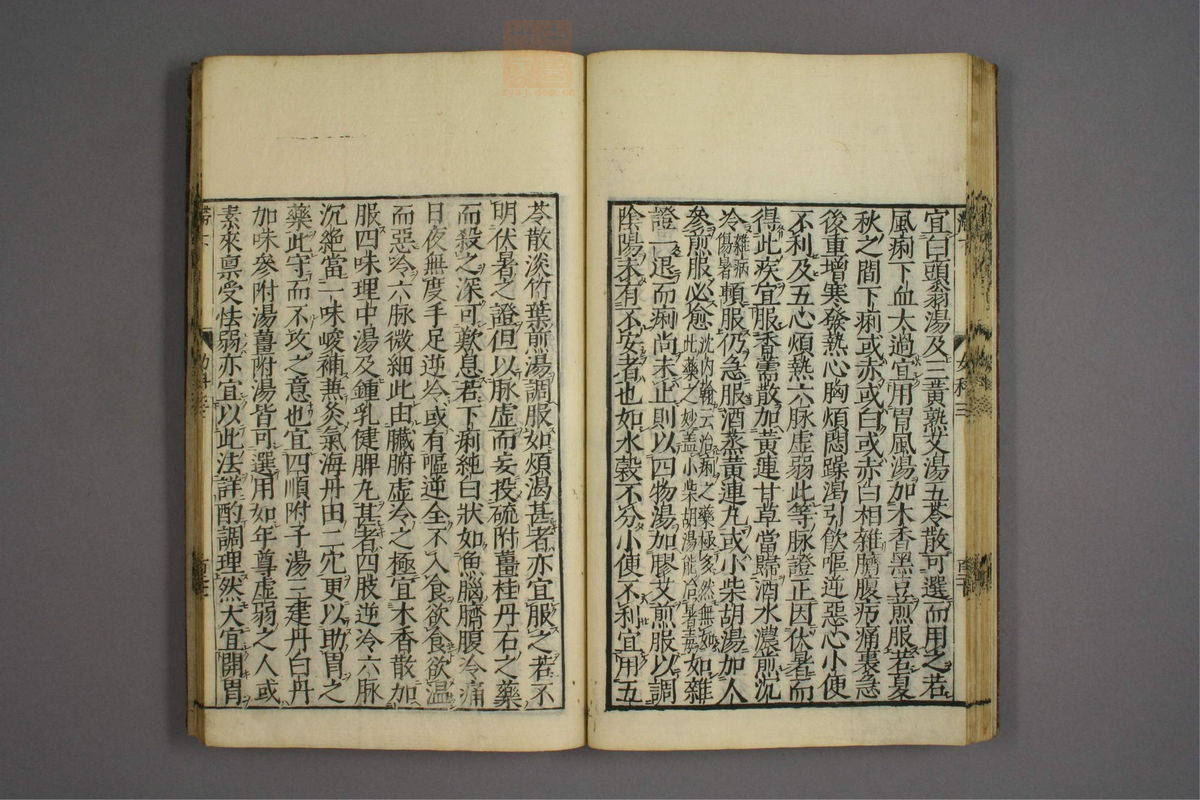 宜白頭翁湯及三黃熟艾湯五苓散可選而用之若
風痢下血太過宜用胃風湯加木香黑豆煎服若夏
秋之間下痢或赤或白或赤白相雜臍腹疠痛裏急
後重增寒發熱心胸煩悶躁渴引飲嘔逆惡心小便
不利及五心煩熱六脉虚弱此等脉證正因伏暑而
得此疾宜服香薷散加黃連甘草當歸酒水濃煎沉
冷雜病傷暑頓服仍急服酒蒸黃連丸或小柴胡湯加人
參煎服必愈沈内翰云治痢之藥極多然無如此藥之妙盖小柴胡湯能冷暑毒如雜
證一退而痢尚未止則以四物湯加膠艾煎服以調
陰陽未有不安者也如水榖不分小便不利宜用五
女科三
苓散淡竹葉煎湯調服如煩渴甚者亦宜服之若不
明伏暑之證但以脉虚而妄投硫附薑桂丹石之藥
而殺之深可歎息若下痢純白狀如魚腦臍腹冷痛
日夜無度手足逆冷或有嘔逆全不入食欲食欲温
而惡冷六脉微細此由臟腑虚冷之極宜木香散加
服四味理中湯及鍾乳健脾丸甚者四肢逆冷六脉
沉絶當一味峻補兼灸氣海丹田二穴更以助胃之
藥此守而不攻之意也宜四順附子湯三建丹白丹
加味參附湯薑附湯皆可選用如年尊虚弱之人或
素來禀受怯弱亦宜以此法詳酌調理然大宜開胃